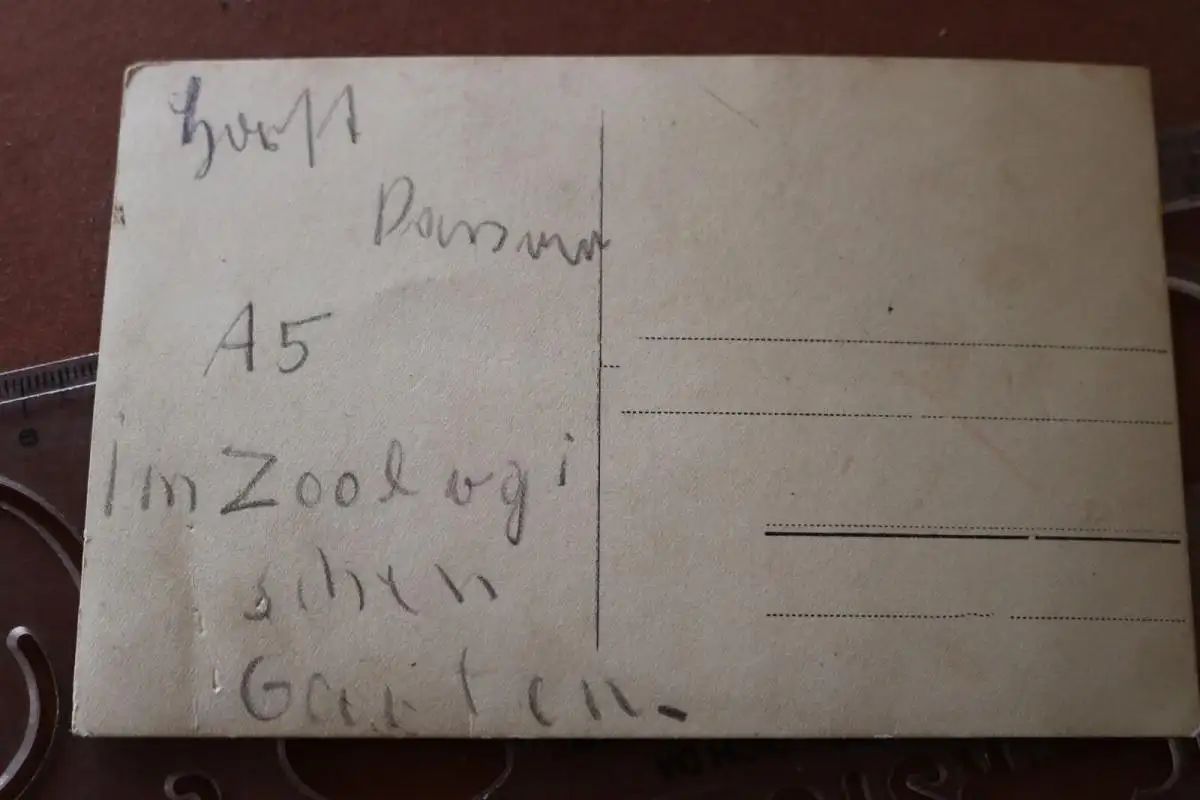 Horst
A5
Im Zoologi
schen
Garten.